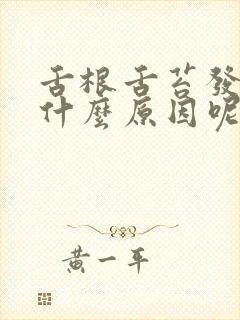 舌根舌苔發
什麼原因呢
黃一平